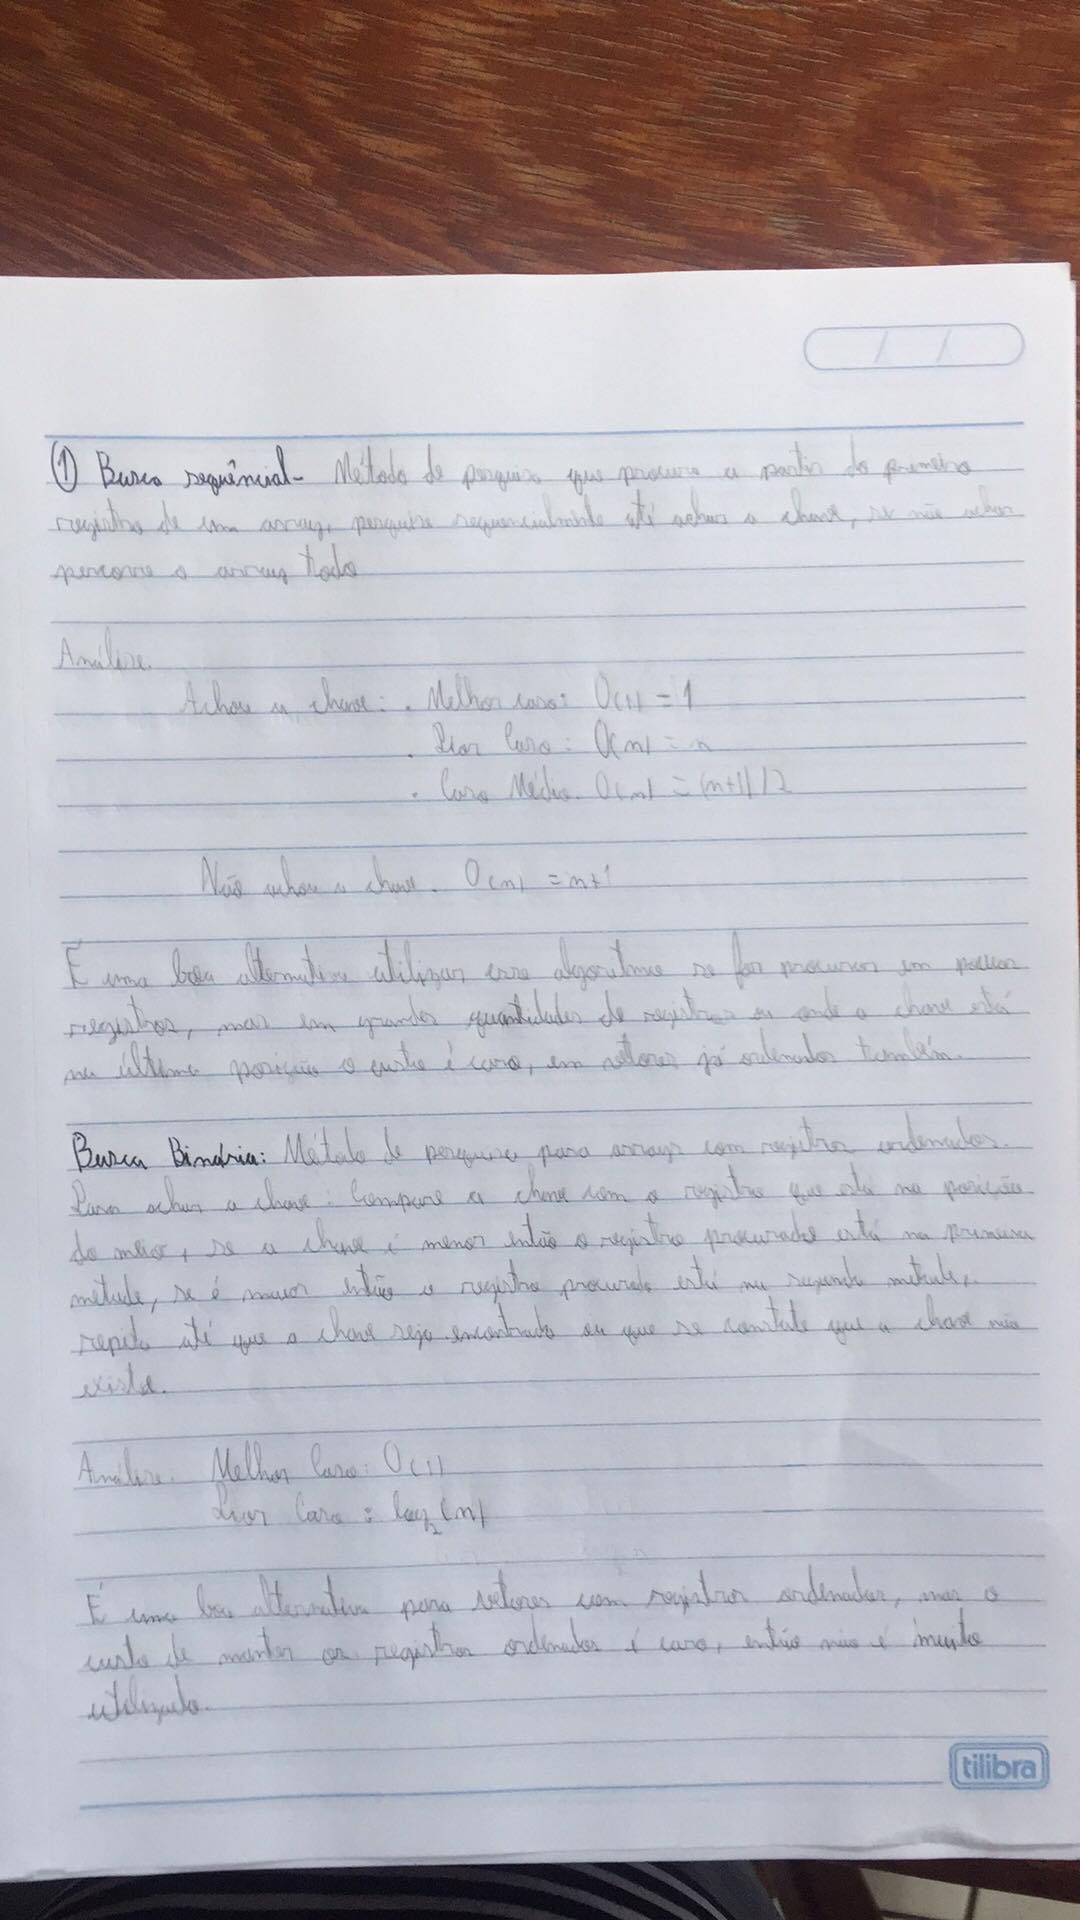 / /
① Busca sequêncial - Método de pesquisa que procura a partir do primeiro
registro de um array, pesquise sequencialmente até achar a chave, se não achar
percorre o array todo
Análise.
Achou a chave: . Melhor caso: O(1) = 1
. Pior Caso: O(n) = n
. Caso Médio. O(n) = (n+1)/2
Não achou a chave. O(n) = n+1
É uma boa alternativa utilizar esse algoritmo se for procurar em poucos
registros, mas em grandes quantidades de registros ou onde a chave está
na última posição o custo é caro, em vetores já ordenados também.
Busca Binária: Método de pesquisa para arrays com registros ordenados.
Para achar a chave: Compare a chave com o registro que está na posição
do meio, se a chave é menor então o registro procurado está na primeira
metade, se é maior então o registro procurado está na segunda metade,
repita até que a chave seja encontrada ou que se constate que a chave não
existe.
Análise. Melhor Caso: O(1)
Pior Caso: log₂(n)
É uma boa alternativa para vetores com registros ordenados, mas o
custo de manter os registros ordenados é caro, então não é muito
utilizado.
tilibra